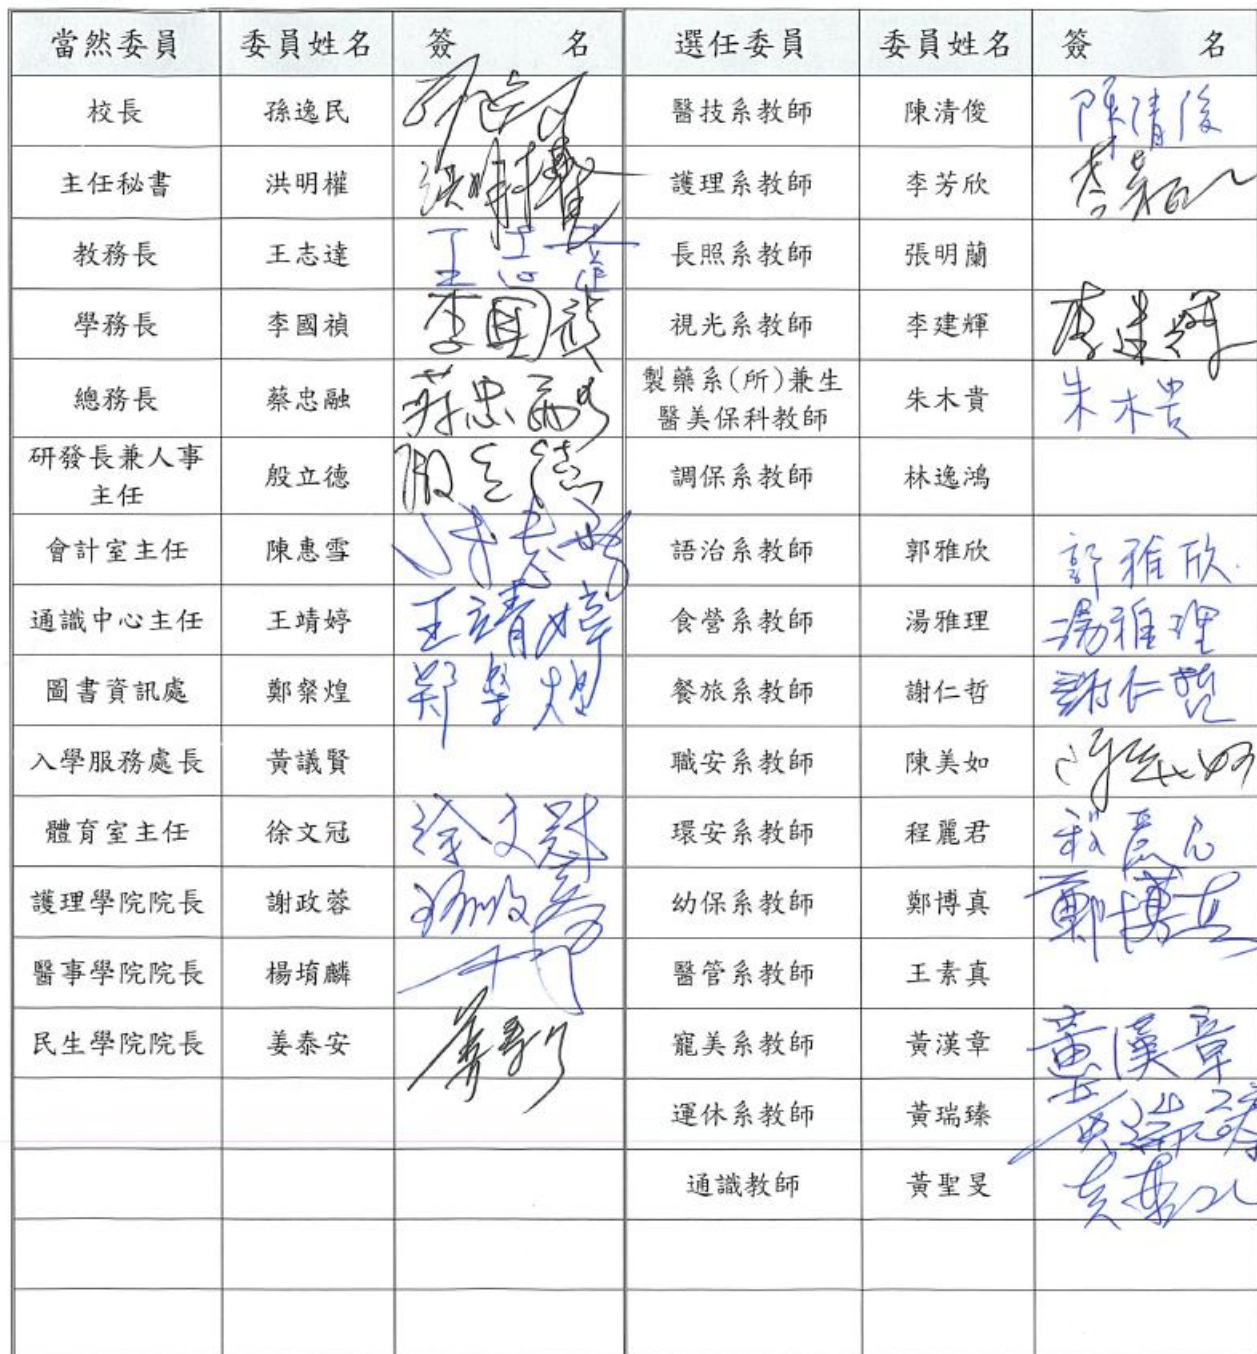 當然委員 委員姓名 簽 名 選任委員 委員姓名 簽 名
校長 孫逸民 醫技系教師 陳清俊 陳清俊
主任秘書 洪明權 洪明權 護理系教師 李芳欣
教務長 王志達 王志達 長照系教師 張明蘭
學務長 李國禎 李國禎 視光系教師 李建輝 李建輝
總務長 蔡忠融 蔡忠融 製藥系(所)兼生
醫美保科教師 朱木貴 朱木貴
研發長兼人事
主任 殷立德 殷立德 調保系教師 林逸鴻
會計室主任 陳惠雪 語治系教師 郭雅欣 郭雅欣
通識中心主任 王靖婷 王靖婷 食營系教師 湯雅理 湯雅理
圖書資訊處 鄭粲煌 鄭粲煌 餐旅系教師 謝仁哲 謝仁哲
入學服務處長 黃議賢 職安系教師 陳美如
體育室主任 徐文冠 徐文冠 環安系教師 程麗君 程麗君
護理學院院長 謝政蓉 幼保系教師 鄭博真 鄭博真
醫事學院院長 楊堉麟 醫管系教師 王素真
民生學院院長 姜泰安 寵美系教師 黃漢章 黃漢章
運休系教師 黃瑞臻 黃瑞臻
通識教師 黃聖旻